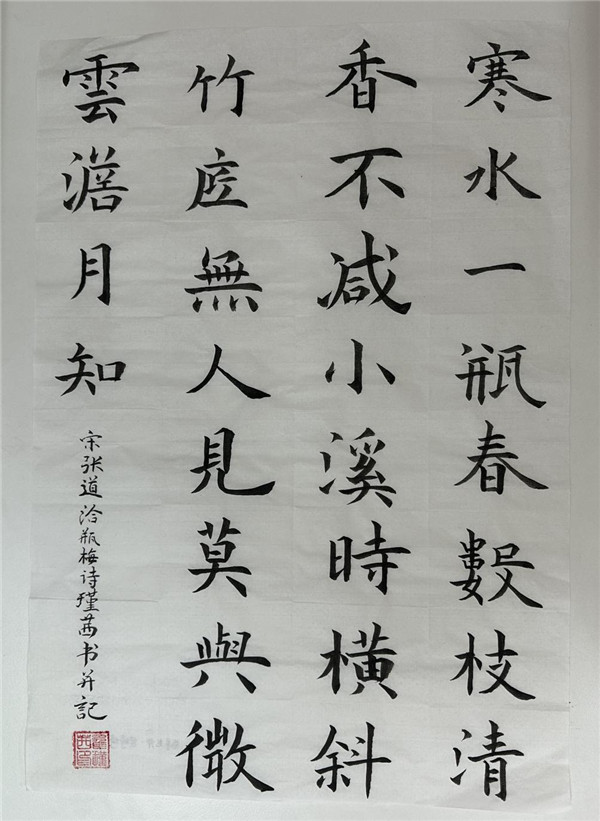 寒水一瓶春數枝清
香不减小溪時横斜
竹底無人見莫與微
雲澹月知
宋张道洽瓶梅诗瑾茜书并記